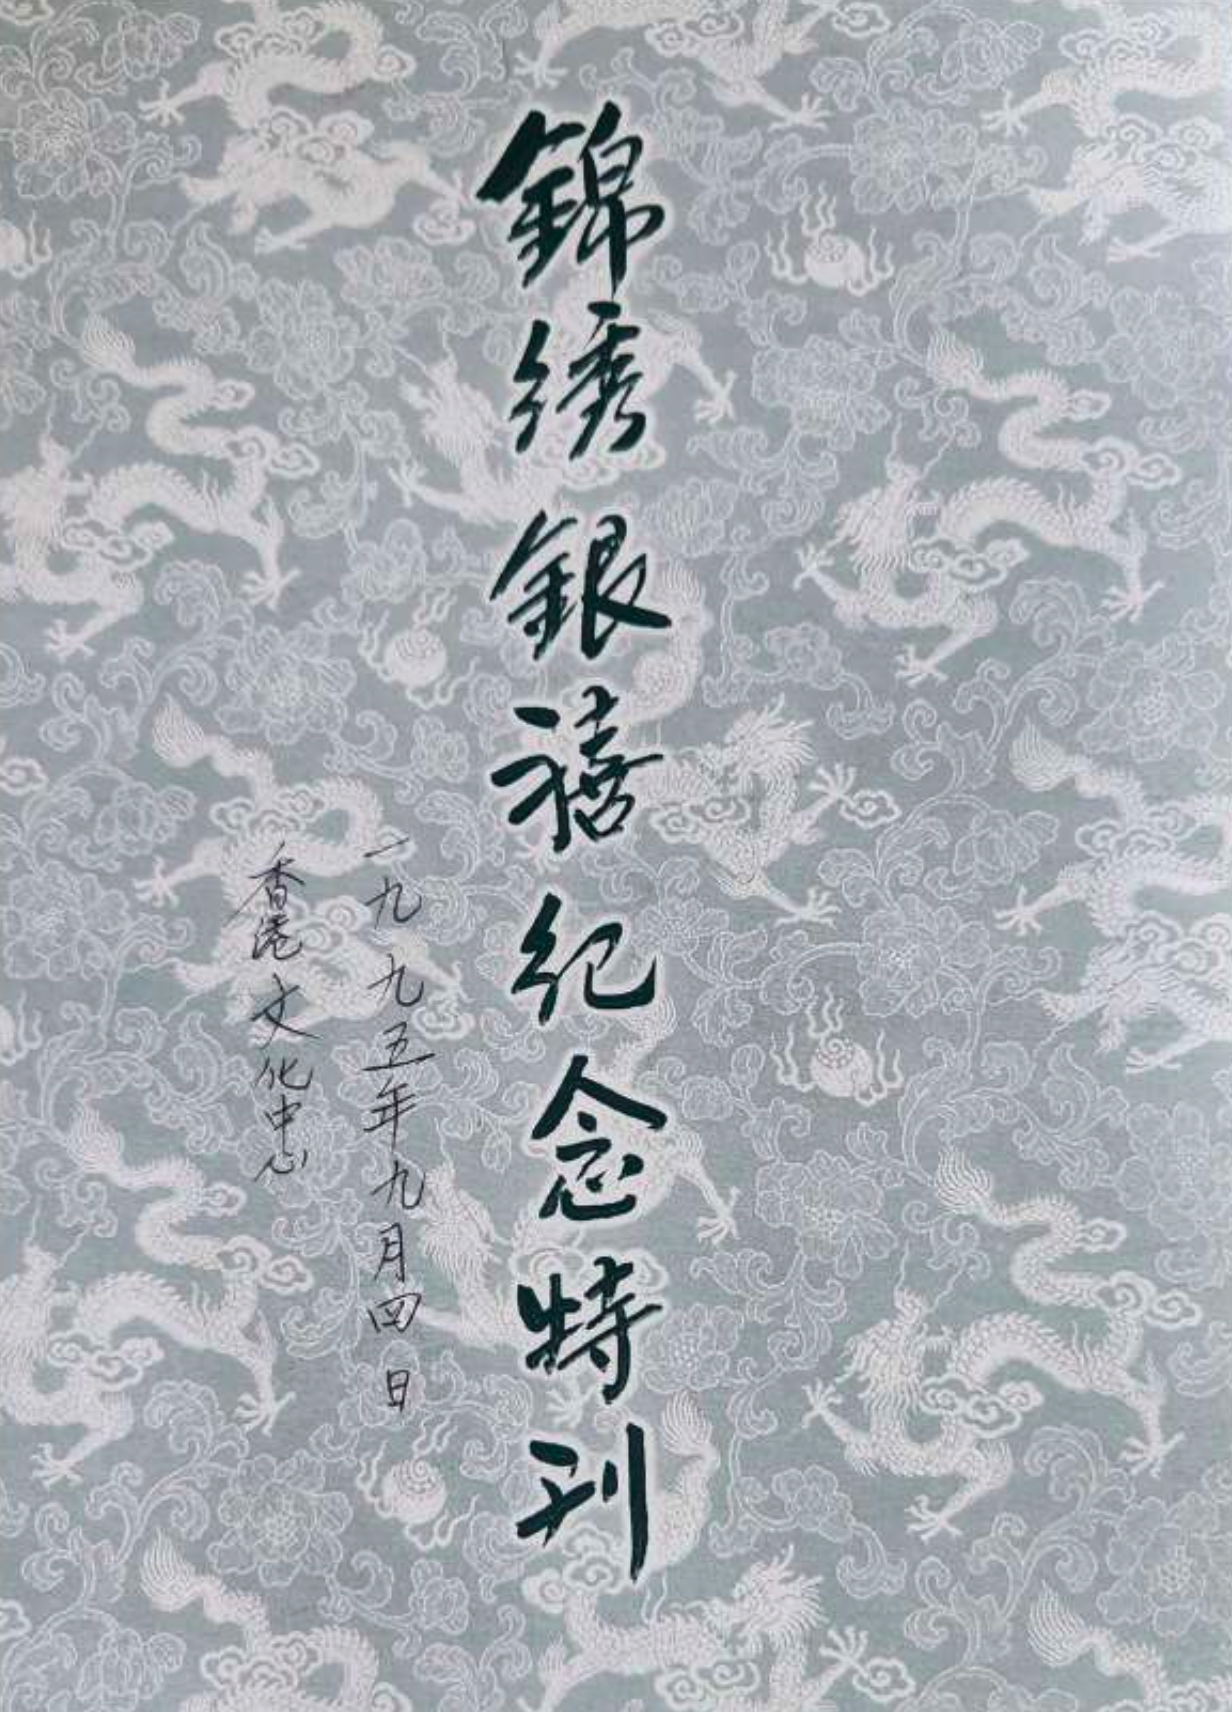 錦绣銀禧纪念特刊
一九九五年九月四日
香港文化中心